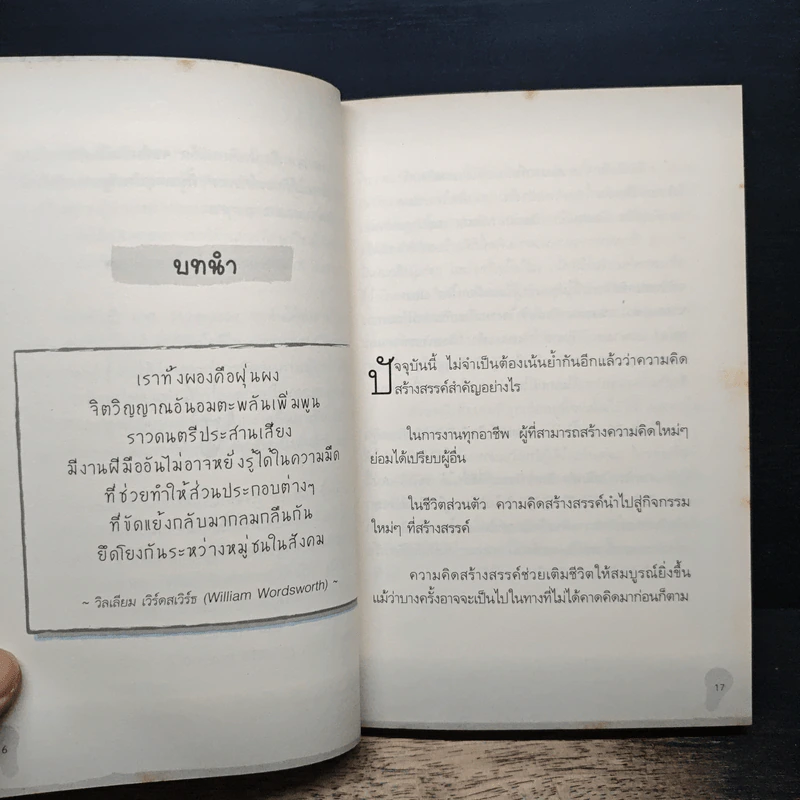 บทนำ
เราทั้งผองคือฝุ่นผง
จิตวิญญาณอันอมตะพลันเพิ่มพูน
ราวดนตรีประสานเสียง
มีงานฝีมืออันไม่อาจหยั่งรู้ได้ในความมืด
ที่ช่วยทำให้ส่วนประกอบต่างๆ
ที่ขัดแย้งกลับมากลมกลืนกัน
ยึดโยงกันระหว่างหมู่ชนในสังคม
~ วิลเลียม เวิร์ดสเวิร์ธ (William Wordsworth) ~
6
ปัจจุบันนี้ ไม่จำเป็นต้องเน้นย้ำกันอีกแล้วว่าความคิด
สร้างสรรค์สำคัญอย่างไร
ในการงานทุกอาชีพ ผู้ที่สามารถสร้างความคิดใหม่ๆ
ย่อมได้เปรียบผู้อื่น
ในชีวิตส่วนตัว ความคิดสร้างสรรค์นำไปสู่กิจกรรม
ใหม่ๆ ที่สร้างสรรค์
ความคิดสร้างสรรค์ช่วยเติมชีวิตให้สมบูรณ์ยิ่งขึ้น
แม้ว่าบางครั้งอาจจะเป็นไปในทางที่ไม่ได้คาดคิดมาก่อนก็ตาม
17